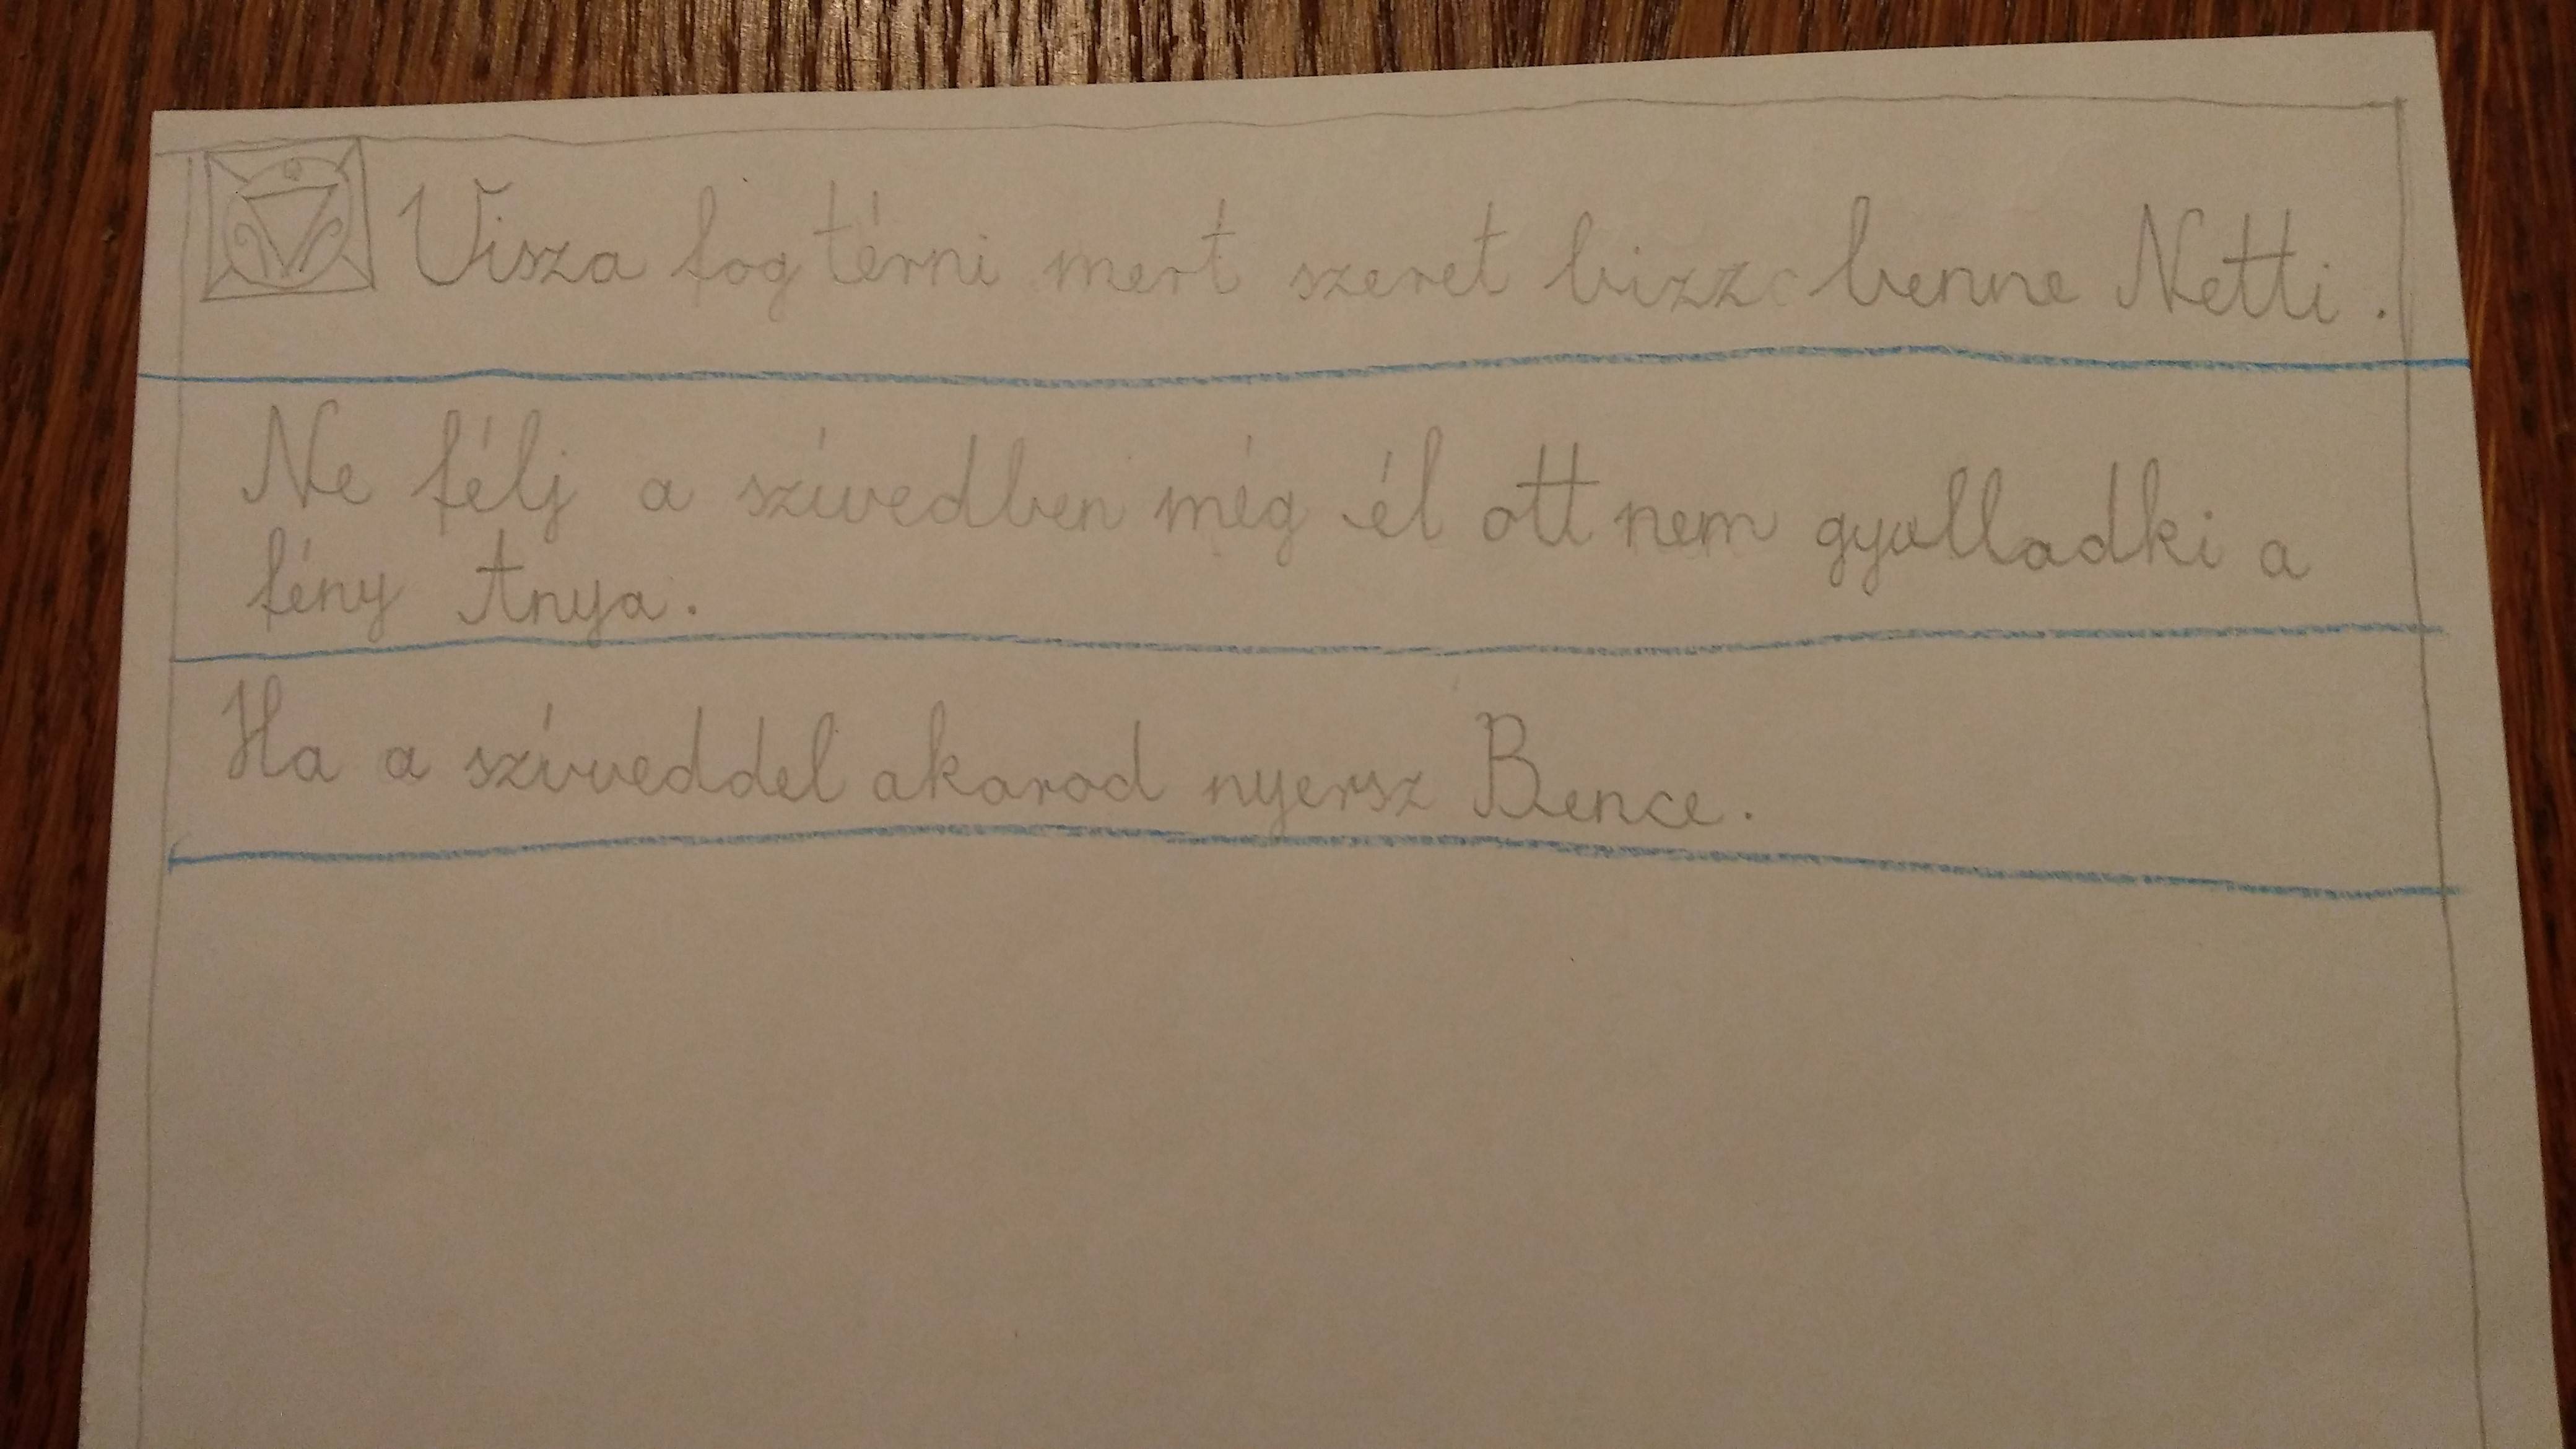 Visza fog térni mert szeret bizz benne Netti.
Ne félj a szívedben még él ott nem gyulladki a
fény Anya.
Ha a szíveddel akarod nyersz Bence.